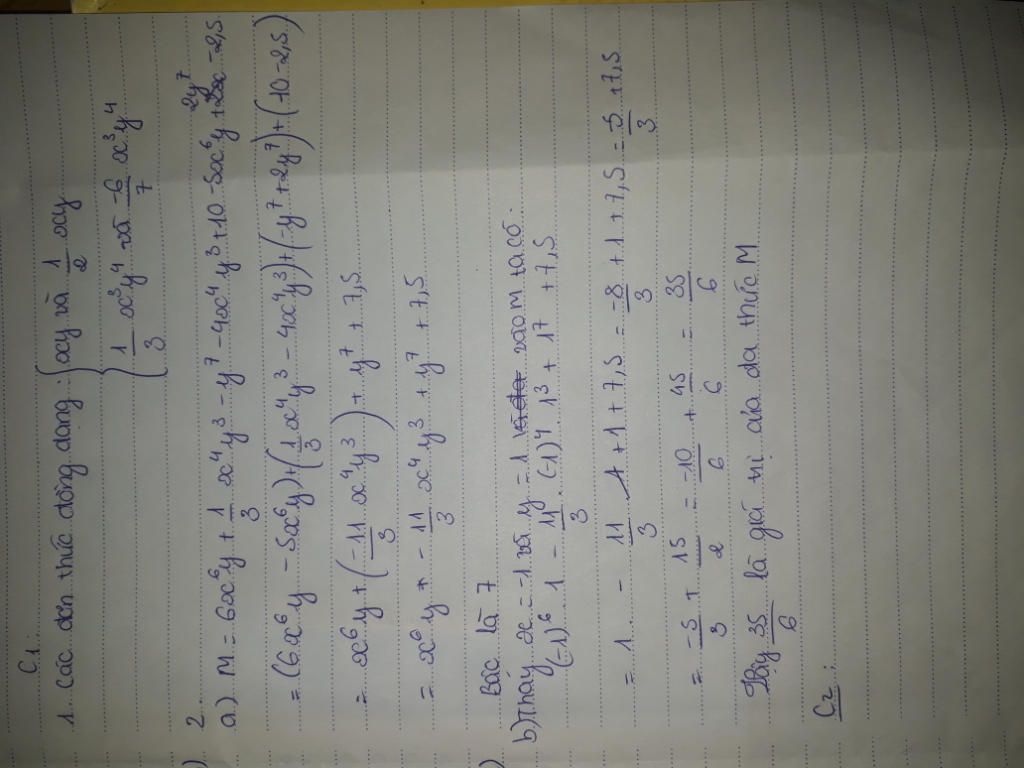 C1:
1. Các đơn thức đồng dạng: { xy và 1/2 xy
{ 1/3 x³y⁴ và -6/7 x³y⁴
2.
a) M = 6x⁶y + 1/3 x⁴y³ - y⁷ - 4x⁴y³ + 10 - 5x⁶y + 2y⁷ - 2,5.
= (6x⁶y - 5x⁶y) + (1/3 x⁴y³ - 4x⁴y³) + (-y⁷ + 2y⁷) + (10 - 2,5)
= x⁶y + (-11/3 x⁴y³) + y⁷ + 7,5
= x⁶y + - 11/3 x⁴y³ + y⁷ + 7,5
Bậc là 7
b) Thay x = -1 và y = 1 vào M ta có.
(-1)⁶. 1 - 11/3. (-1)⁴. 1³ + 1⁷ + 7,5
= 1 - 11/3 . 1 + 1 + 7,5 = -8/3 + 1 + 7,5 = -5/3 + 7,5
= -5/3 + 15/2 = -10/6 + 45/6 = 35/6
Vậy 35/6 là giá trị của đa thức M
C2: